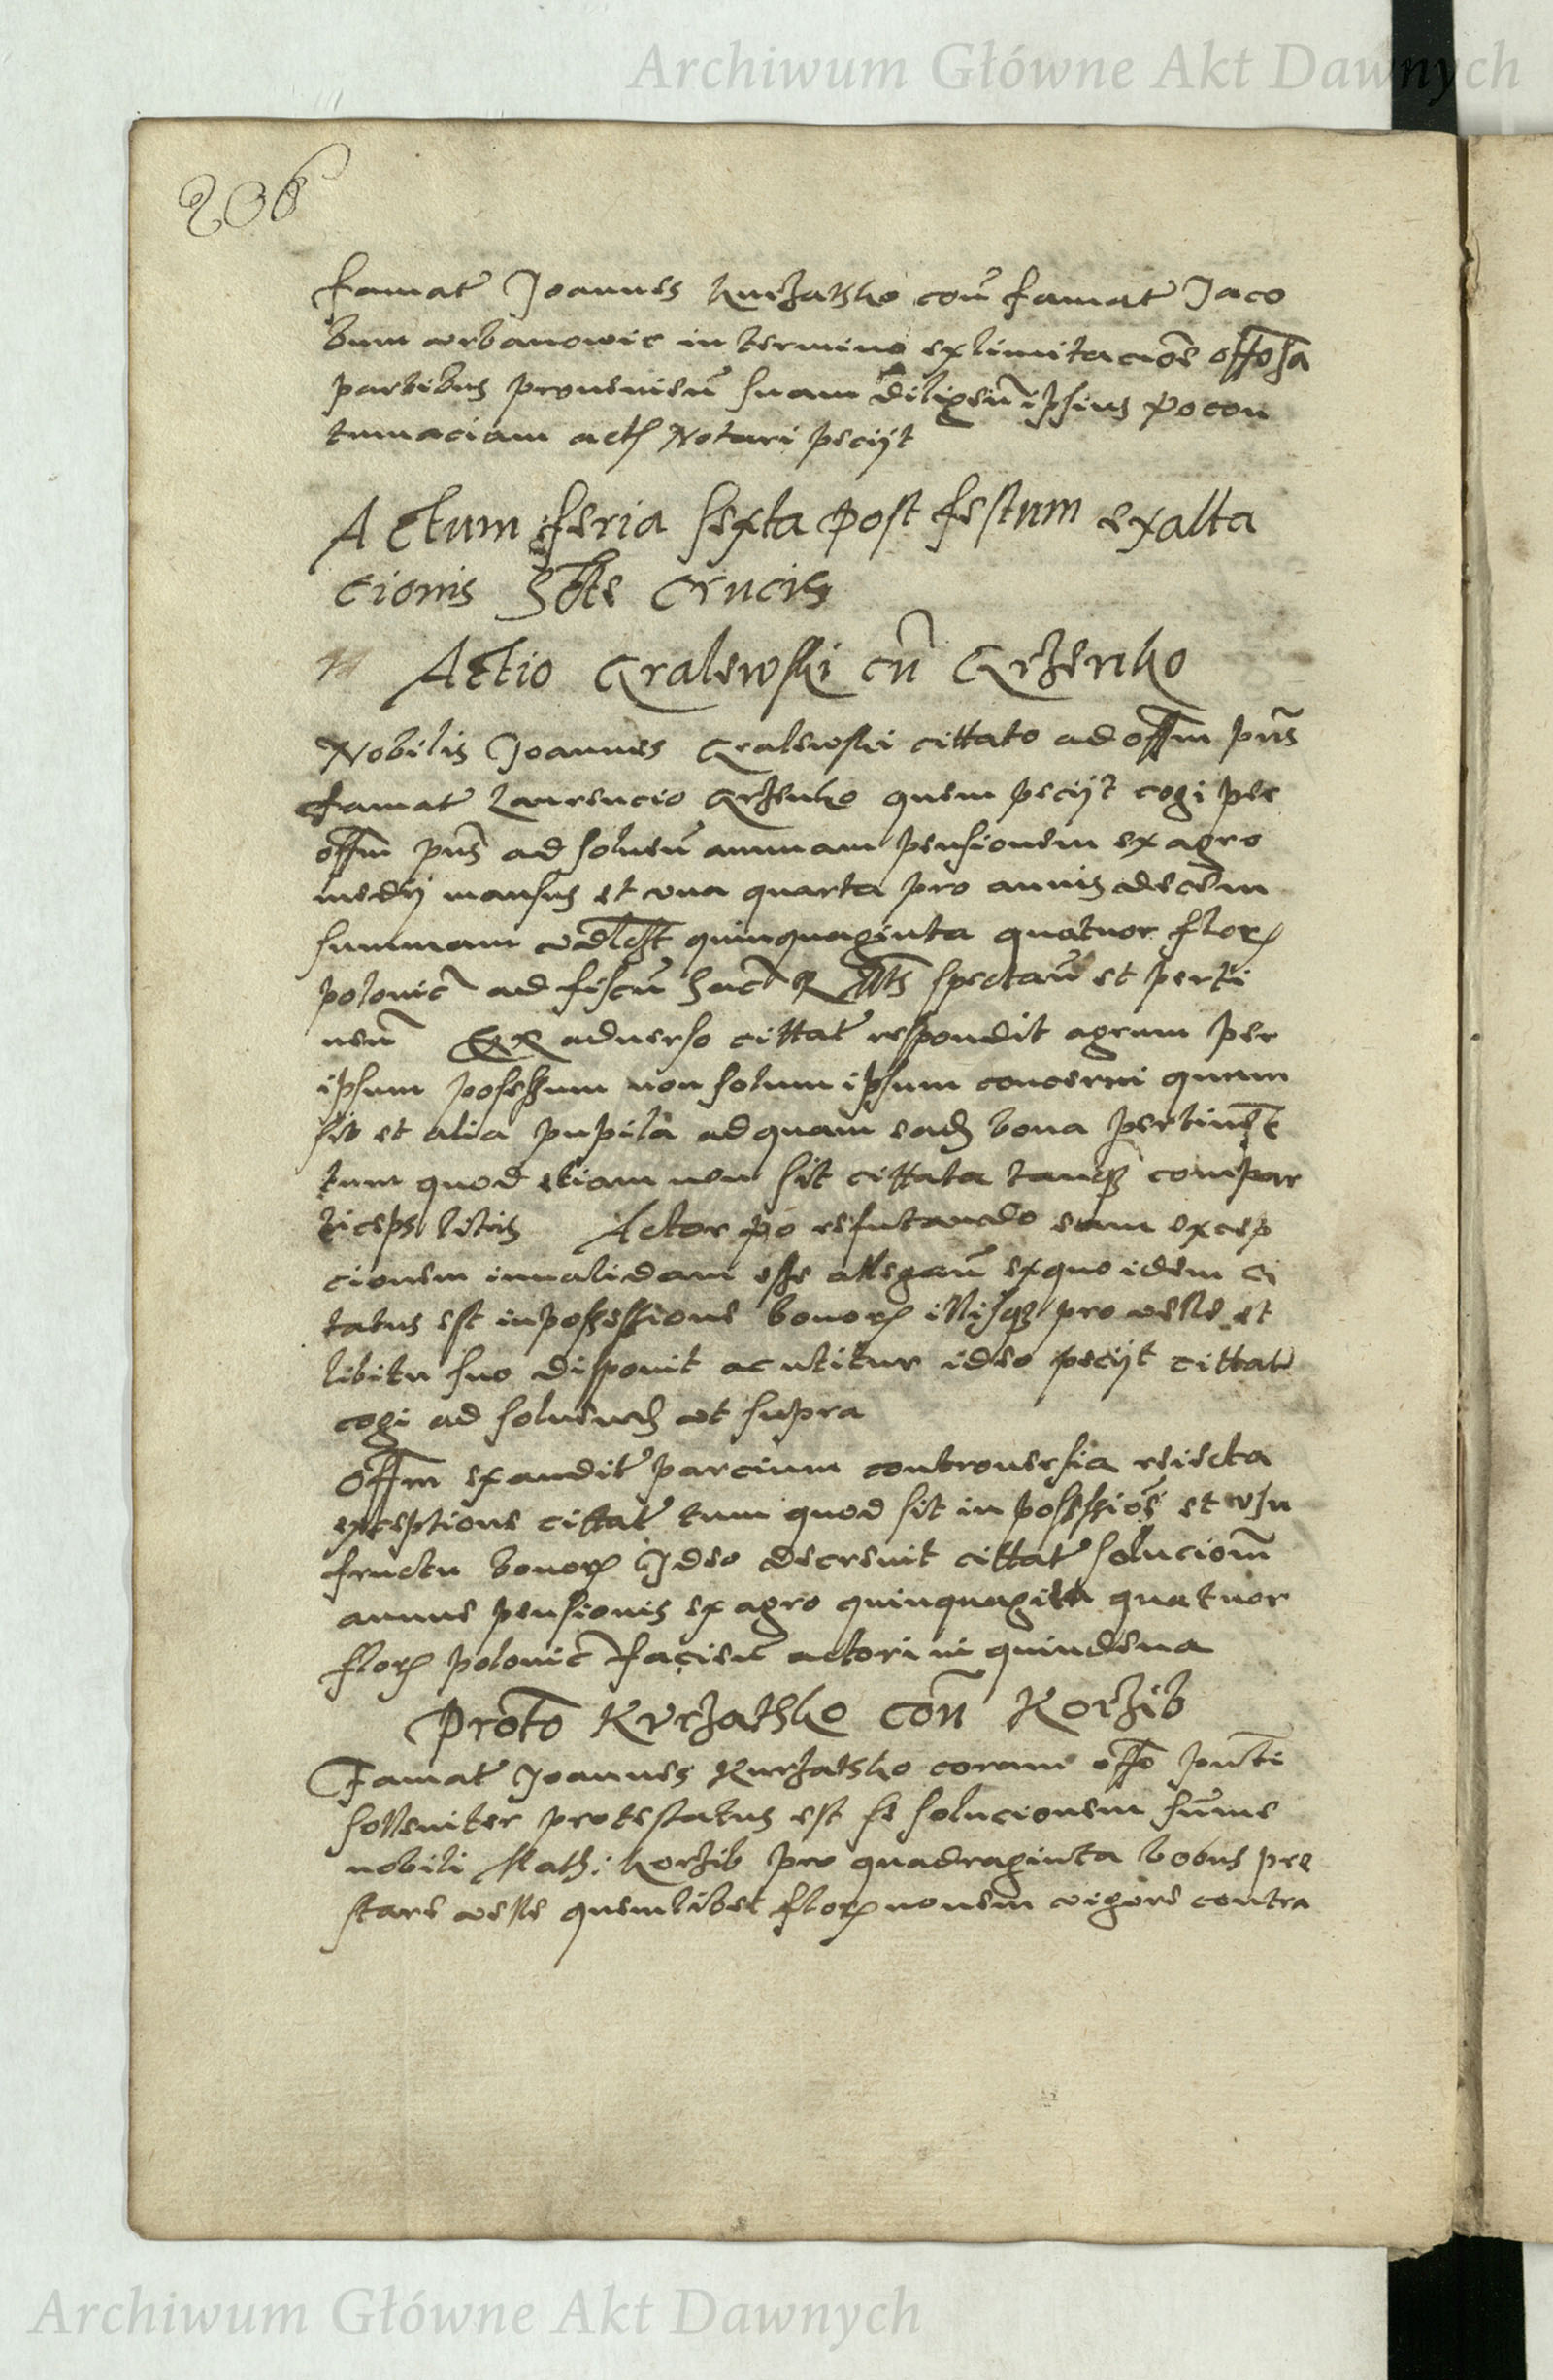 Archiwum Główne Akt Dawnych
206
famat Joannes Kurzathko con famat Jaco
bum urbanowic in termino ex limitacioe
partibus provenien suam diligen ipsius vo con
tumaciam act Notari peciit
Actum feria sexta post festum exalta
cionis Scte Crucis
Actio Gralewski cu Grzenko
Nobilis Joannes Gralewski cittato ad offm pns
famat Laurencio Grzenko quem peciit cogi per
offm pns ad solven annuam pensionem ex agro
medy mansus et una quarta pro annis decem
summam quinquaginta quatuor flor
polonic ad fiscu Sac R Mtis spectan et perti
nen Ex adverso cittat respondit agrum per
ipsum possessum non solum ipsum concerni quum
sit et alia pupila ad quam ead bona pertinet
tum quod etiam non sit cittata tanq compar
ticeps litis Actor vo refutando eam excep
cionem invalidam esse allegan ex quo idem ci
tatus est in possessione bonor illisq pro velle et
libitu suo disponit ac utitur ideo peciit cittat
cogi ad solvend ut supra
Offm exaudit parcium controversia reiecta
exceptione cittat tum quod sit in possessioe et usu
fructu bonor Ideo decrevit cittat solucionm
annue pensionis ex agro quinquagita quatuor
flor polonic facien actori in quindena
Proto Kurzathko con Korzib
Famat Joannes Kurzathko coram offo pnti
solleniter protestatus est se solucionem sume
nobili Math: Korzib pro quadraginta bobus pre
stare velle quemlibet flor novem vigore contra
Archiwum Główne Akt Dawnych